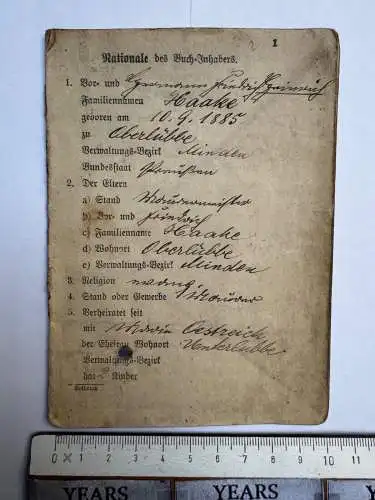 I
Nationale des Buch-Inhabers.
1. Vor- und Hermann Friedrich Heinrich
Familiennamen Haake
geboren am 10. 9. 1885
zu Oberlübbe
Verwaltungs-Bezirk Minden
Bundesstaat Preußen
2. Der Eltern
a) Stand Maurermeister
b) Vor- und Friedrich
c) Familienname Haake
d) Wohnort Oberlübbe
e) Verwaltungs-Bezirk Minden
3. Religion evang.
4. Stand oder Gewerbe Maurer
5. Verheiratet seit
mit Marie Oestreich
der Ehefrau Wohnort Unterlübbe
Verwaltungs-Bezirk
hat 2 Kinder
0 1 2 3 4 5 6 7 8 9 10 11
YEARS YEARS YEARS